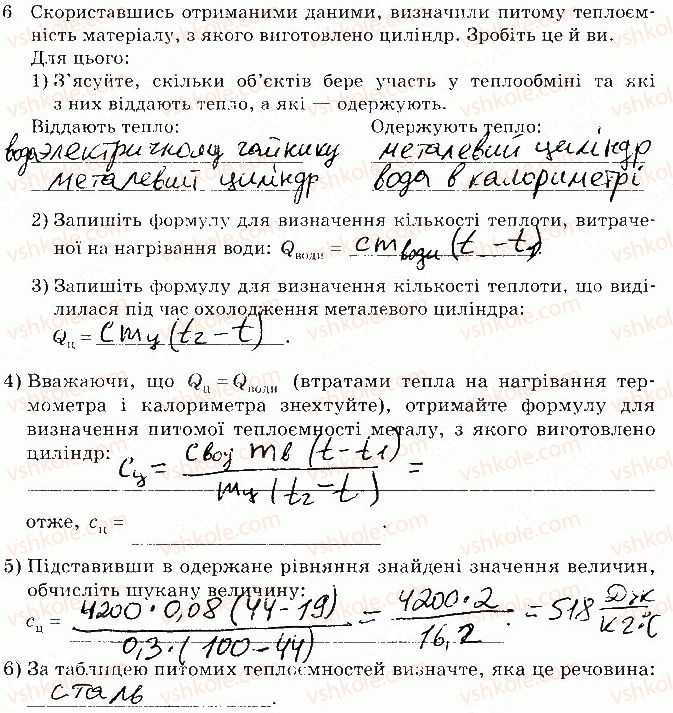 6 Скориставшись отриманими даними, визначили питому теплоєм-
ність матеріалу, з якого виготовлено циліндр. Зробіть це й ви.
Для цього:
1) З'ясуйте, скільки об'єктів бере участь у теплообміні та які
з них віддають тепло, а які — одержують.
Віддають тепло: Одержують тепло:
вода электричному чайнику металевий циліндр
металевий циліндр вода в калориметрі
2) Запишіть формулу для визначення кількості теплоти, витраче-
ної на нагрівання води: Qводи = cmводи (t - t1).
3) Запишіть формулу для визначення кількості теплоти, що виді-
лилася під час охолодження металевого циліндра:
Qц = cmц (t2 - t).
4) Вважаючи, що Qц = Qводи (втратами тепла на нагрівання тер-
мометра і калориметра знехтуйте), отримайте формулу для
визначення питомої теплоємності металу, з якого виготовлено
циліндр:
cц = cвод mв (t - t1) / mц (t2 - t) =
отже, cц = .
5) Підставивши в одержане рівняння знайдені значення величин,
обчисліть шукану величину:
cц = 4200 · 0,08 (44 - 19) / 0,3 · (100 - 44) = 4200 · 2 / 16,2 = 518 Дж / кг·°C
6) За таблицею питомих теплоємностей визначте, яка це речовина:
сталь .
vshkole.com